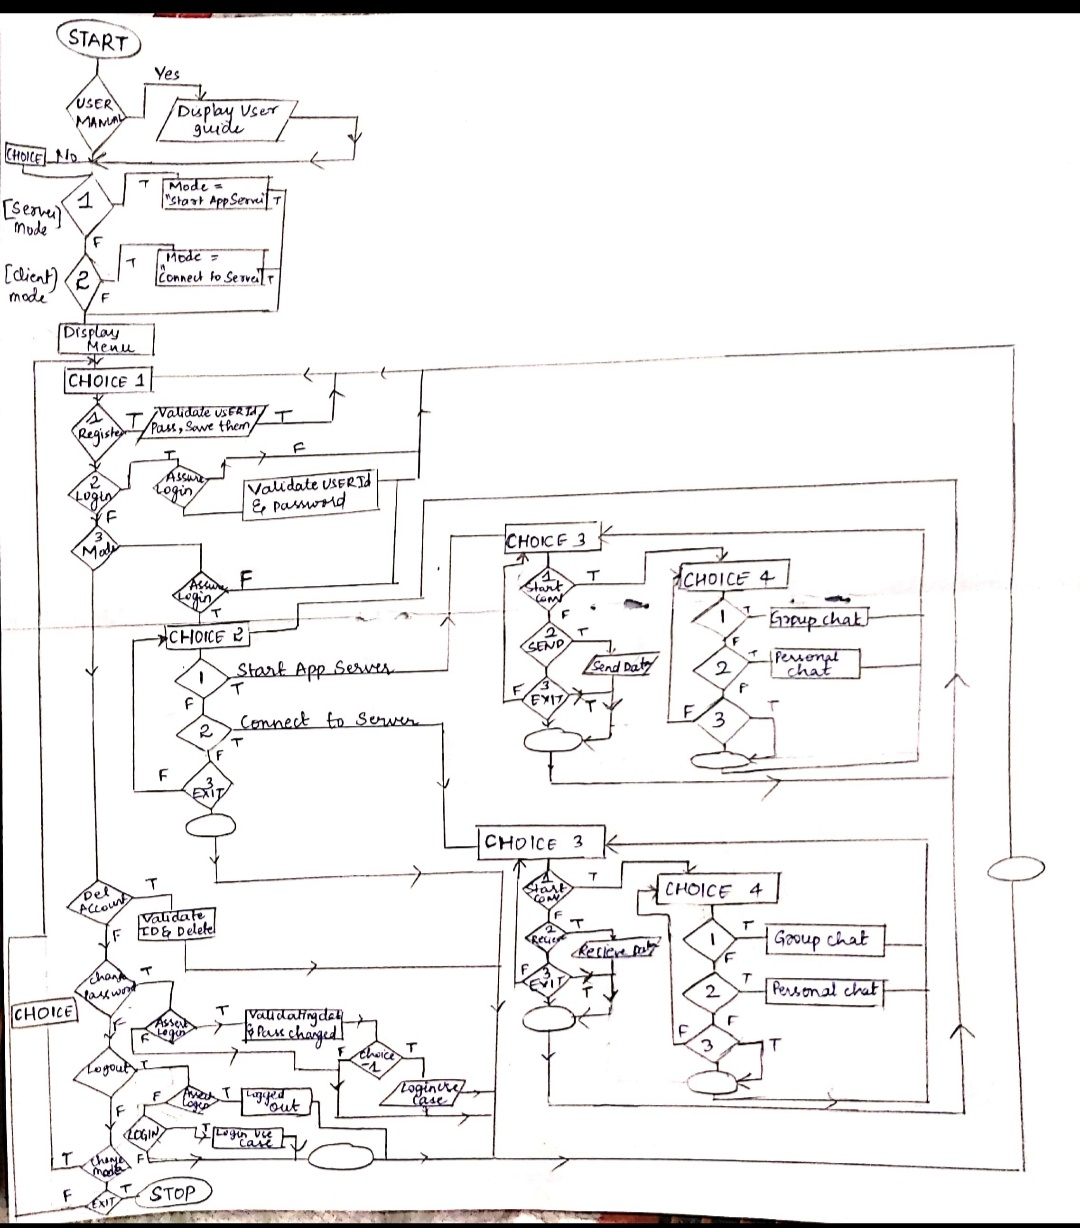 START
Yes
USER
MANUAL
Display User
guide
CHOICE
No
1
T
Mode =
"Start App Server
T
[Server]
Mode
F
2
T
Mode =
"Connect to Server
T
[client]
mode
F
Display
Menu
CHOICE 1
1
Register
T
Validate USERId
Pass, Save them
T
2
Login
T
Assure
Login
F
Validate USERId
& password
F
3
Mode
Assure
Login
F
T
CHOICE 2
1
Start App Server
T
F
2
Connect to Server
T
F
3
EXIT
F
CHOICE 3
1
Start
Conv
T
F
2
SEND
T
Send Data
3
EXIT
F
T
CHOICE 4
1
T
Group chat
F
2
T
Personal
chat
F
3
F
T
CHOICE 3
1
Start
Conv
T
F
2
Reciev
T
Recieve Data
3
EXIT
F
T
CHOICE 4
1
T
Group chat
F
2
T
Personal chat
F
3
F
T
Del
Account
T
Validate
ID & Delete
F
Chang
Password
T
CHOICE
F
Assure
Login
T
F
Validating dat
Pass changed
F
Choice
=1
T
Login Use
Case
Logout
T
F
Login
T
F
Logged
out
LOGIN
T
F
Login Use
Case
Change
mode
T
EXIT
F
T
STOP